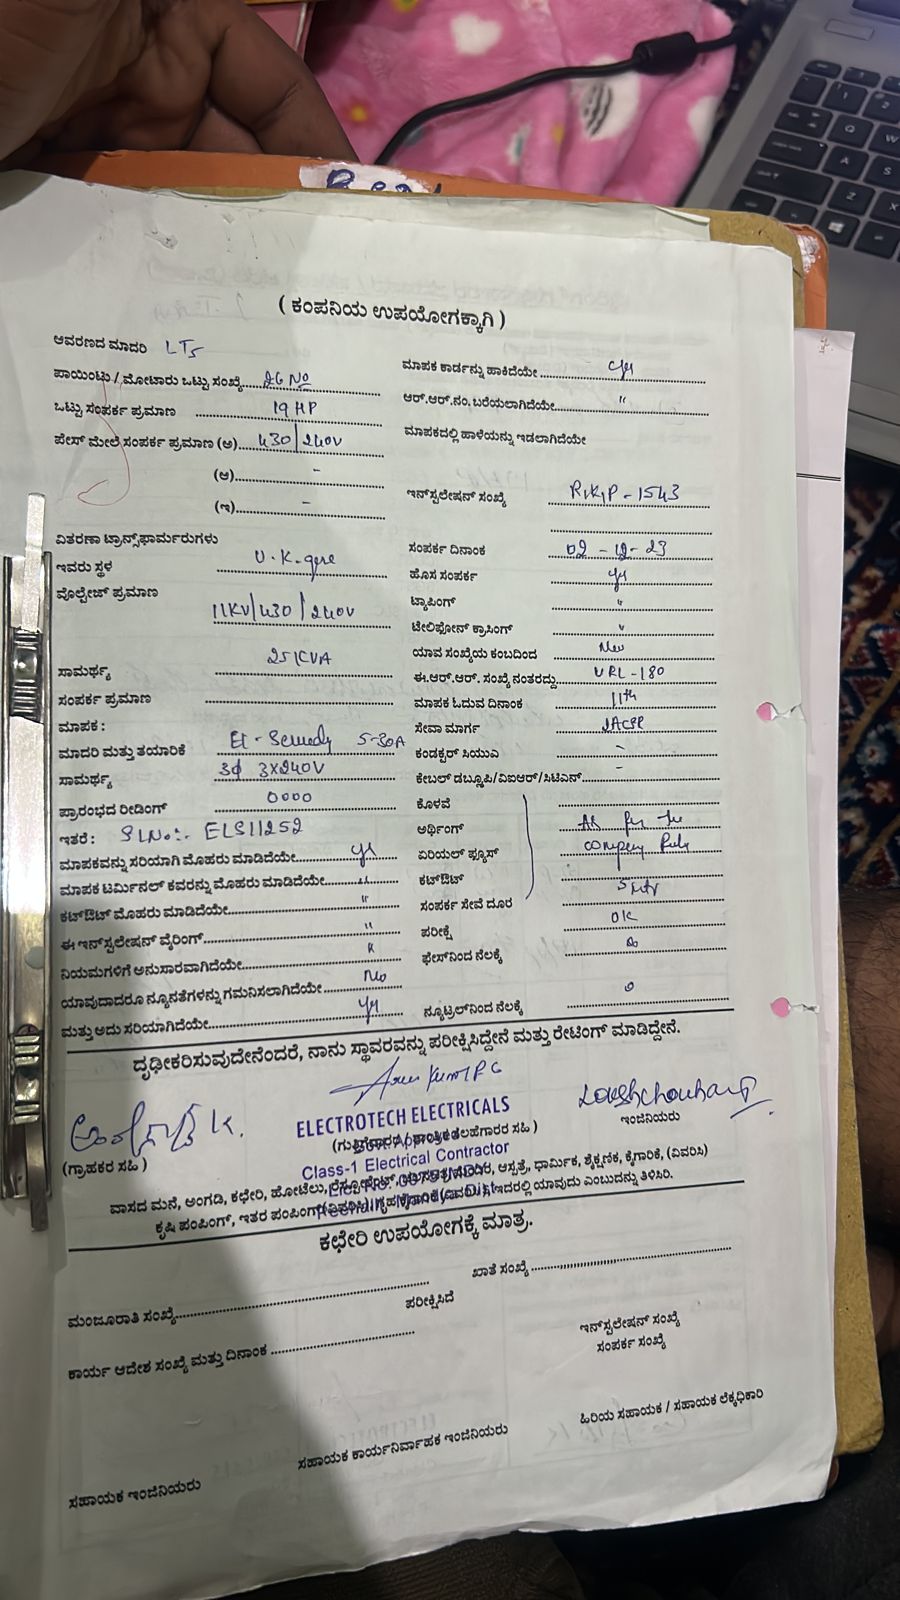 ( ಕಂಪನಿಯ ಉಪಯೋಗಕ್ಕಾಗಿ )
ಆವರಣದ ಮಾದರಿ LT5
ಪಾಯಿಂಟು / ಮೋಟಾರು ಒಟ್ಟು ಸಂಖ್ಯೆ..... 26 No
ಒಟ್ಟು ಸಂಪರ್ಕ ಪ್ರಮಾಣ ..... 19 HP
ಫೇಸ್ ಮೇಲೆ ಸಂಪರ್ಕ ಪ್ರಮಾಣ (ಅ)..... 430/240V
(ಆ)..... -
(ಇ)..... -
ವಿತರಣಾ ಟ್ರಾನ್ಸ್‌ಫಾರ್ಮರುಗಳು
ಇವರು ಸ್ಥಳ ..... U.K.gere
ವೊಲ್ಟೇಜ್ ಪ್ರಮಾಣ 11KV/430/240V
ಸಾಮರ್ಥ್ಯ ..... 25KVA
ಸಂಪರ್ಕ ಪ್ರಮಾಣ .....
ಮಾಪಕ :
ಮಾದರಿ ಮತ್ತು ತಯಾರಿಕೆ 5-30A
ಸಾಮರ್ಥ್ಯ 3ф 3x240V
ಪ್ರಾರಂಭದ ರೀಡಿಂಗ್ 0000
ಇತರೆ : SLNo:- ELS11252
ಮಾಪಕವನ್ನು ಸರಿಯಾಗಿ ಮೊಹರು ಮಾಡಿದೆಯೇ..... Yes
ಮಾಪಕ ಟರ್ಮಿನಲ್ ಕವರನ್ನು ಮೊಹರು ಮಾಡಿದೆಯೇ..... "
ಕಟ್‌ಔಟ್ ಮೊಹರು ಮಾಡಿದೆಯೇ..... "
ಈ ಇನ್‌ಸ್ಟಲೇಷನ್ ವೈರಿಂಗ್..... "
ನಿಯಮಗಳಿಗೆ ಅನುಸಾರವಾಗಿದೆಯೇ..... "
ಯಾವುದಾದರೂ ನ್ಯೂನತೆಗಳನ್ನು ಗಮನಿಸಲಾಗಿದೆಯೇ..... No
ಮತ್ತು ಅದು ಸರಿಯಾಗಿದೆಯೇ..... Yes
ಮಾಪಕ ಕಾರ್ಡನ್ನು ಹಾಕಿದೆಯೇ ..... Yes
ಆರ್.ಆರ್.ನಂ. ಬರೆಯಲಾಗಿದೆಯೇ..... "
ಮಾಪಕದಲ್ಲಿ ಹಾಳೆಯನ್ನು ಇಡಲಾಗಿದೆಯೇ
ಇನ್‌ಸ್ಟಲೇಷನ್ ಸಂಖ್ಯೆ RKIP-1543
ಸಂಪರ್ಕ ದಿನಾಂಕ 02-12-23
ಹೊಸ ಸಂಪರ್ಕ Yes
ಟ್ಯಾಪಿಂಗ್ "
ಟೇಲಿಫೋನ್ ಕ್ರಾಸಿಂಗ್ "
ಯಾವ ಸಂಖ್ಯೆಯ ಕಂಬದಿಂದ New
ಈ.ಆರ್.ಆರ್. ಸಂಖ್ಯೆ ನಂತರದ್ದು..... URL-180
ಮಾಪಕ ಓದುವ ದಿನಾಂಕ 11th
ಸೇವಾ ಮಾರ್ಗ 2ACSR
ಕಂಡಕ್ಟರ್ ಸಿಯುಎ -
ಕೇಬಲ್ ಡಬ್ಲೂಪಿ/ವಿಐಆರ್/ಸಿಟಿಎನ್..... -
ಕೊಳವೆ
ಅರ್ಥಿಂಗ್ As per the
ಏರಿಯಲ್ ಫ್ಯೂಸ್ company Rule
ಕಟ್‌ಔಟ್
ಸಂಪರ್ಕ ಸೇವೆ ದೂರ 5 mtr
ಪರೀಕ್ಷೆ OK
ಫೇಸ್‌ನಿಂದ ನೆಲಕ್ಕೆ
ನ್ಯೂಟ್ರಲ್‌ನಿಂದ ನೆಲಕ್ಕೆ 0
ದೃಢೀಕರಿಸುವುದೇನೆಂದರೆ, ನಾನು ಸ್ಥಾವರವನ್ನು ಪರೀಕ್ಷಿಸಿದ್ದೇನೆ ಮತ್ತು ರೇಟಿಂಗ್ ಮಾಡಿದ್ದೇನೆ.
ELECTROTECH ELECTRICALS
Class-1 Electrical Contractor
(ಗ್ರಾಹಕರ ಸಹಿ )
ಇಂಜಿನಿಯರು
ವಾಸದ ಮನೆ, ಅಂಗಡಿ, ಕಛೇರಿ, ಹೋಟೆಲು, ಆಸ್ಪತ್ರೆ, ಧಾರ್ಮಿಕ, ಶೈಕ್ಷಣಿಕ, ಕೈಗಾರಿಕೆ, (ವಿವರಿಸಿ)
ಕೃಷಿ ಪಂಪಿಂಗ್, ಇತರ ಪಂಪಿಂಗ್ ಇದರಲ್ಲಿ ಯಾವುದು ಎಂಬುದನ್ನು ತಿಳಿಸಿರಿ.
ಕಛೇರಿ ಉಪಯೋಗಕ್ಕೆ ಮಾತ್ರ.
ಮಂಜೂರಾತಿ ಸಂಖ್ಯೆ.....
ಖಾತೆ ಸಂಖ್ಯೆ .....
ಪರೀಕ್ಷಿಸಿದೆ
ಕಾರ್ಯ ಆದೇಶ ಸಂಖ್ಯೆ ಮತ್ತು ದಿನಾಂಕ .....
ಇನ್‌ಸ್ಟಲೇಷನ್ ಸಂಖ್ಯೆ
ಸಂಪರ್ಕ ಸಂಖ್ಯೆ
ಸಹಾಯಕ ಇಂಜಿನಿಯರು
ಸಹಾಯಕ ಕಾರ್ಯನಿರ್ವಾಹಕ ಇಂಜಿನಿಯರು
ಹಿರಿಯ ಸಹಾಯಕ / ಸಹಾಯಕ ಲೆಕ್ಕಧಿಕಾರಿ